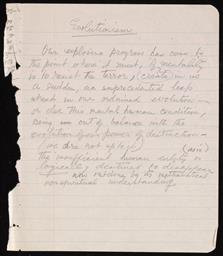 Evolutionism
Our explosive progress has come to
the point where it must, if mentality
is to resist the terror, (create) in us
a sudden, an unprecedented leap
ahead in our ordained evolution —
or else this mental human condition,
being in out of balance with the
evolution of our powers of destruction —
(we are not up to it) (will)
the insufficient human entity is
logically destined to disappear
now nearing by its
nonspiritual understanding